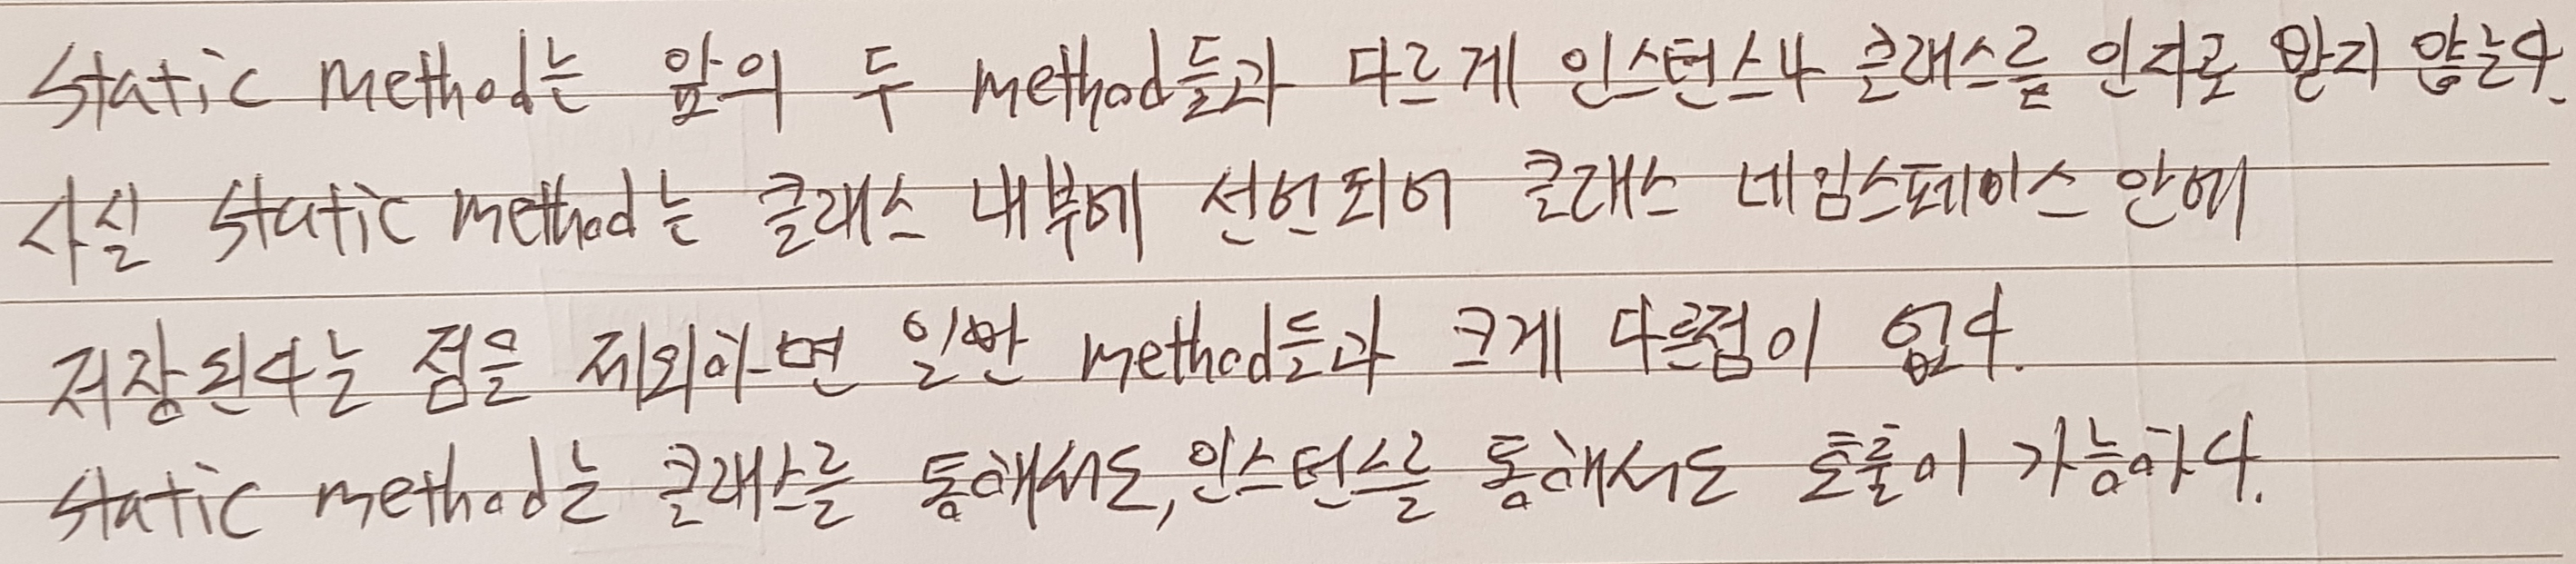 static method는 앞의 두 method들과 다르게 인스턴스나 클래스를 인자로 받지 않는다.
사실 static method는 클래스 내부에 선언되어 클래스 네임스페이스 안에
저장된다는 점을 제외하면 일반 method들과 크게 다른점이 없다.
static method는 클래스를 통해서도, 인스턴스를 통해서도 호출이 가능하다.